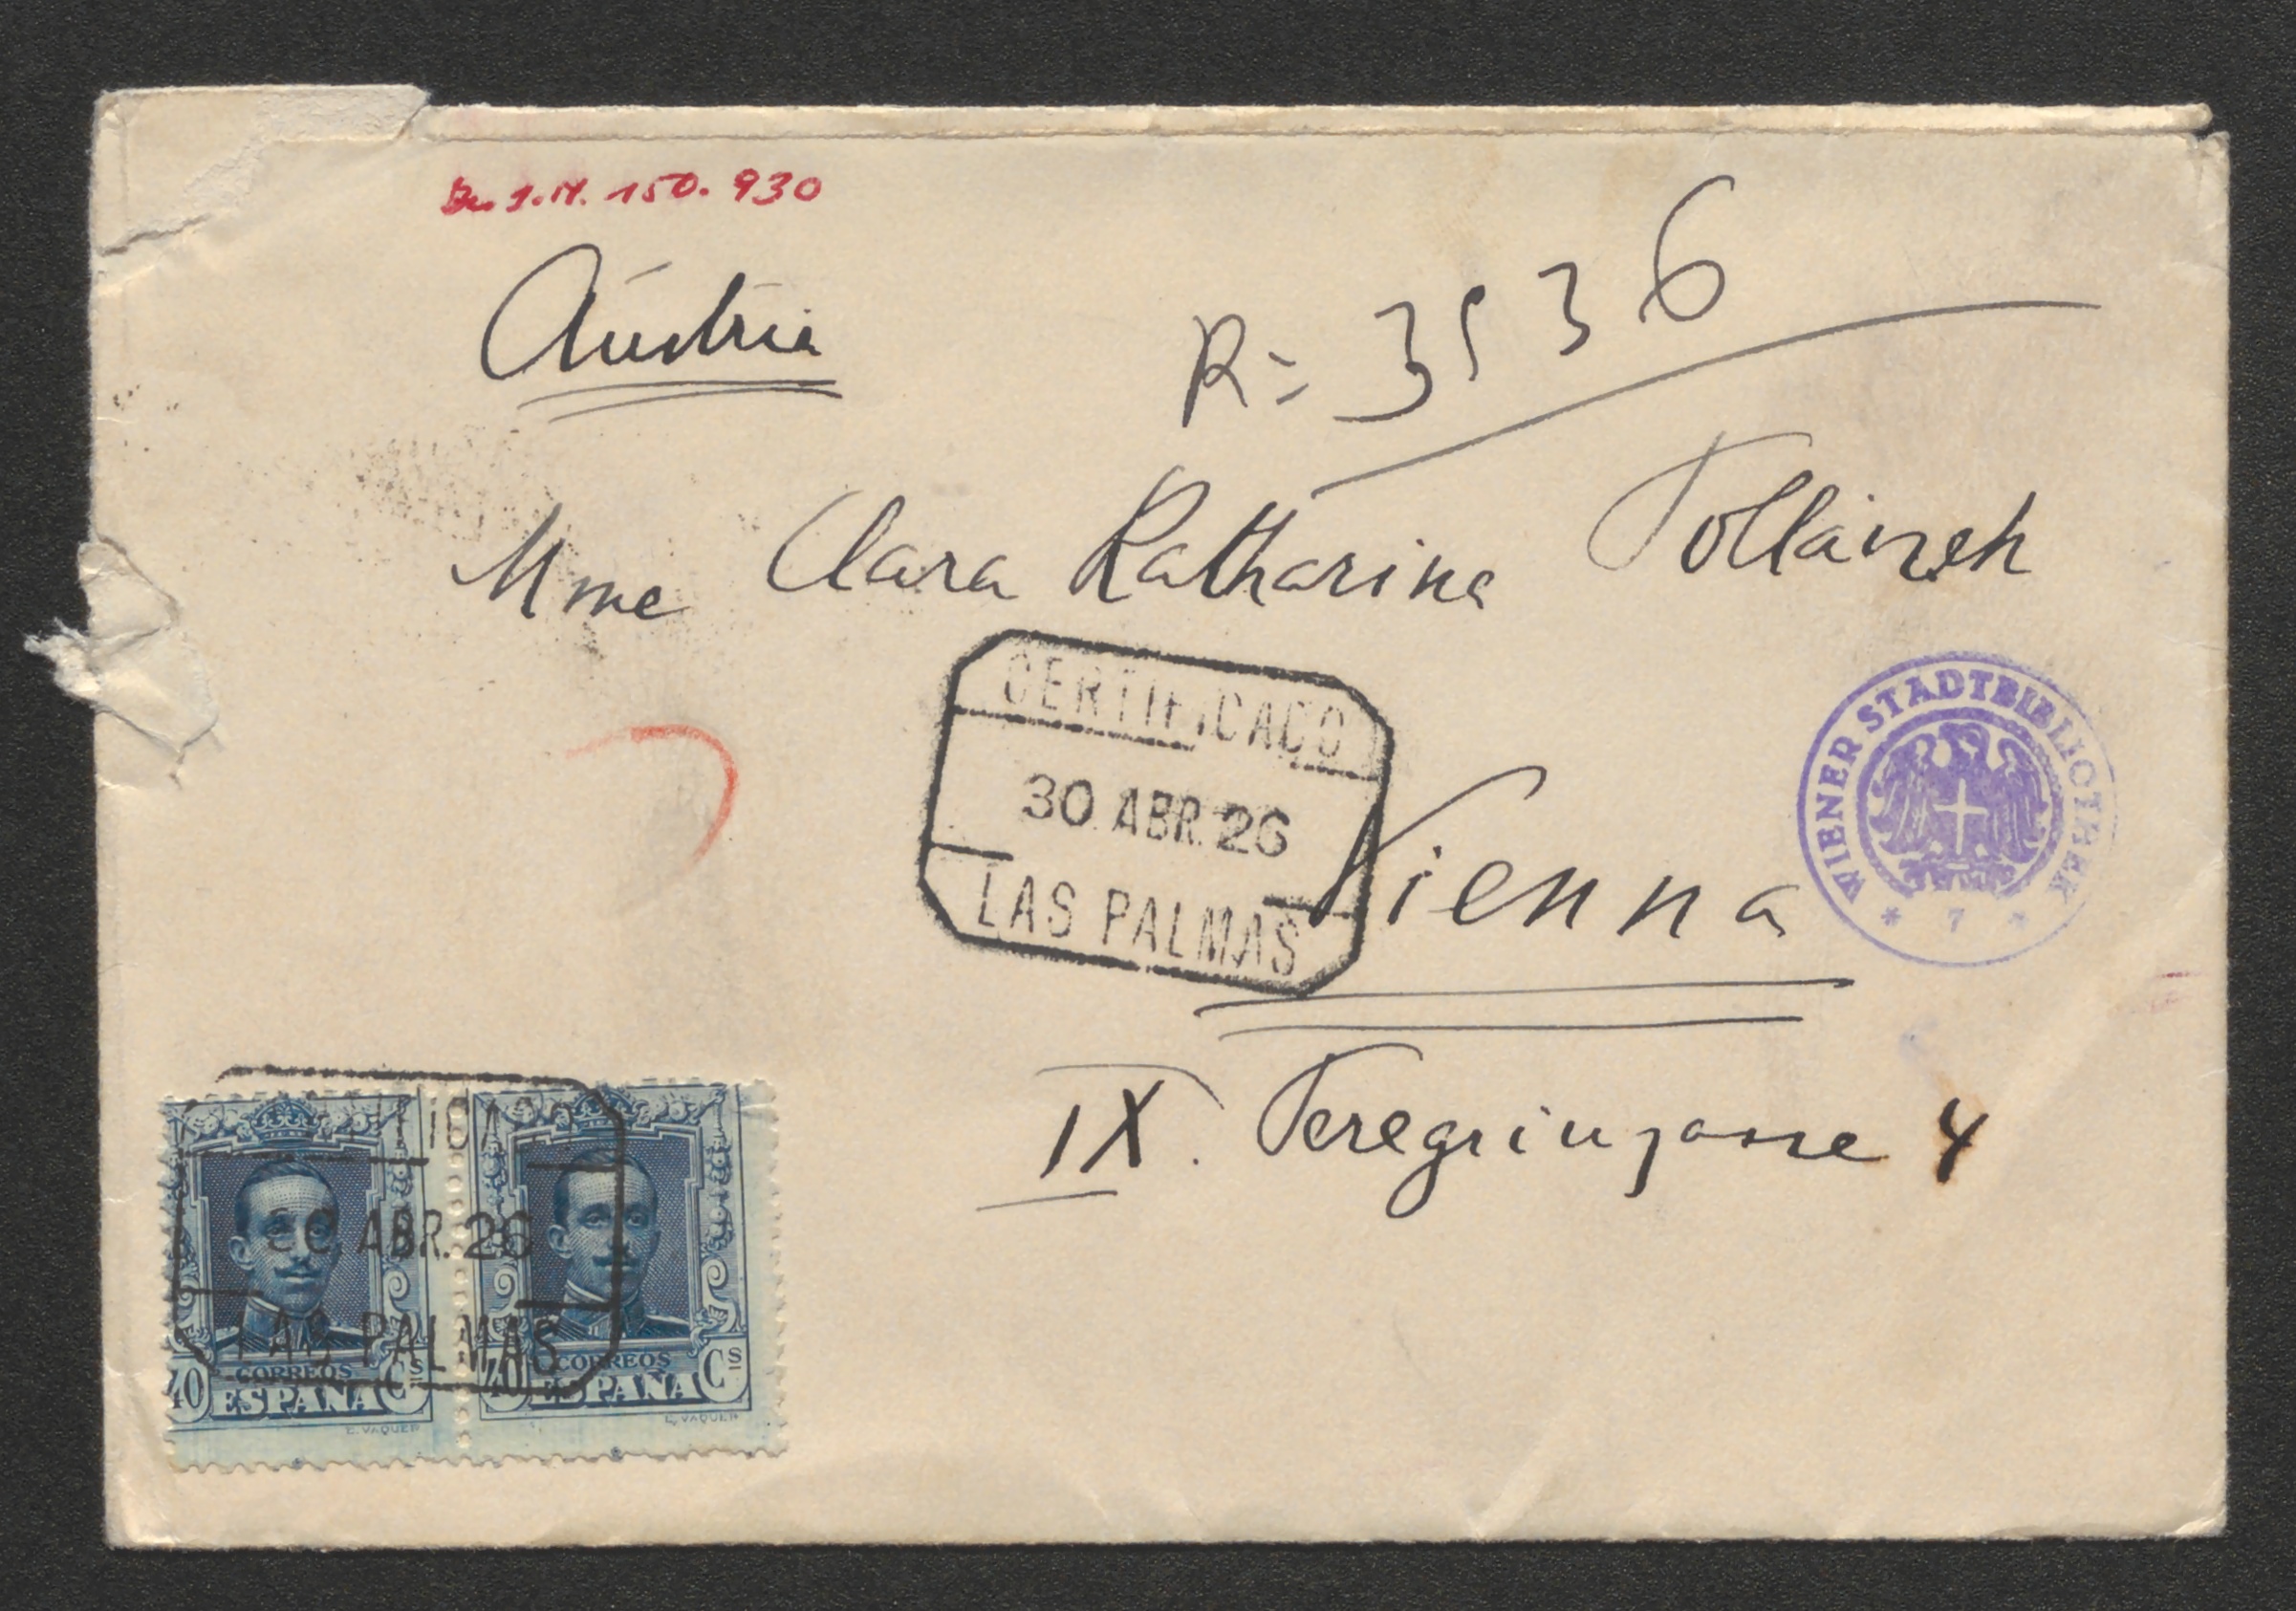 150.930
Austria
R = 3536
Mme Clara Katharina Pollaczek
CERTIFICADO
30 ABR. 26
LAS PALMAS
Vienna
WIENER STADTBIBLIOTHEK
* 7 *
IX. Peregringasse 4
CERTIFICADO
ABR. 26
LAS PALMAS
40 CORREOS Cs
ESPAÑA
E. VAQUER
40 CORREOS Cs
ESPAÑA
E. VAQUER